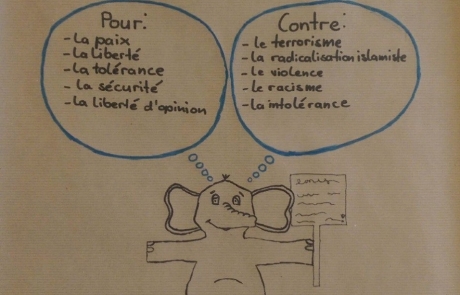 Pour:
-la paix
-La liberté
-La tolérance
-la sécurité
-La liberté d'opinion
Contre:
-le terrorisme
-la radicalisation islamiste
-le violence
-le racisme
-la intolérance